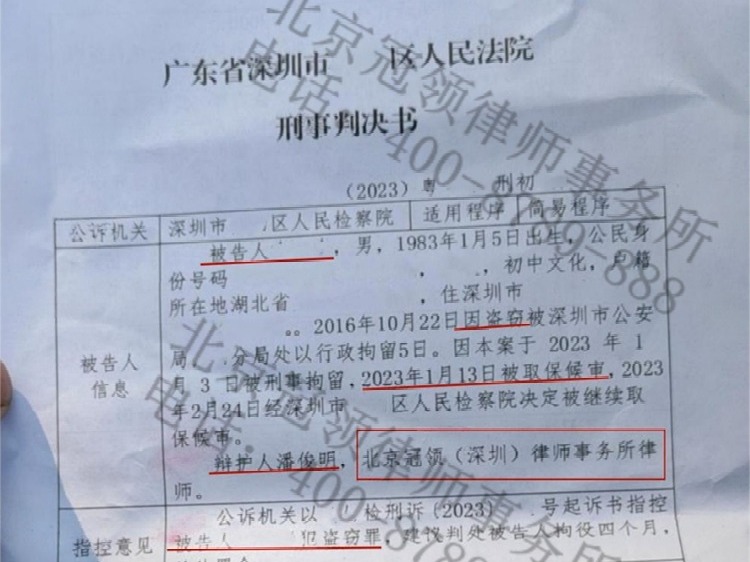 广东省深圳市 区人民法院
刑事判决书
(2023)粤 刑初
公诉机关 深圳市 区人民检察院 适用程序 简易程序
被告人 ,男,1983年1月5日出生,公民身
份号码 , ,初中文化,户籍
所在地湖北省 ,住深圳市
。。2016年10月22日因盗窃被深圳市公安
局 分局处以行政拘留5日。因本案于 2023 年 1
月 3 日被刑事拘留,2023年1月13日被取保候审,2023
年2月24日经深圳市 区人民检察院决定被继续取
保候审。
被告人
信息
辩护人潘俊明,北京冠领(深圳)律师事务所律
师。
公诉机关以 检刑诉(2023) 号起诉书指控
指控意见 被告人 犯盗窃罪,建议判处被告人拘役四个月,
北京冠领律师事务所
电话:400-8789-888
北京冠领律师事务所
电话:400-8789